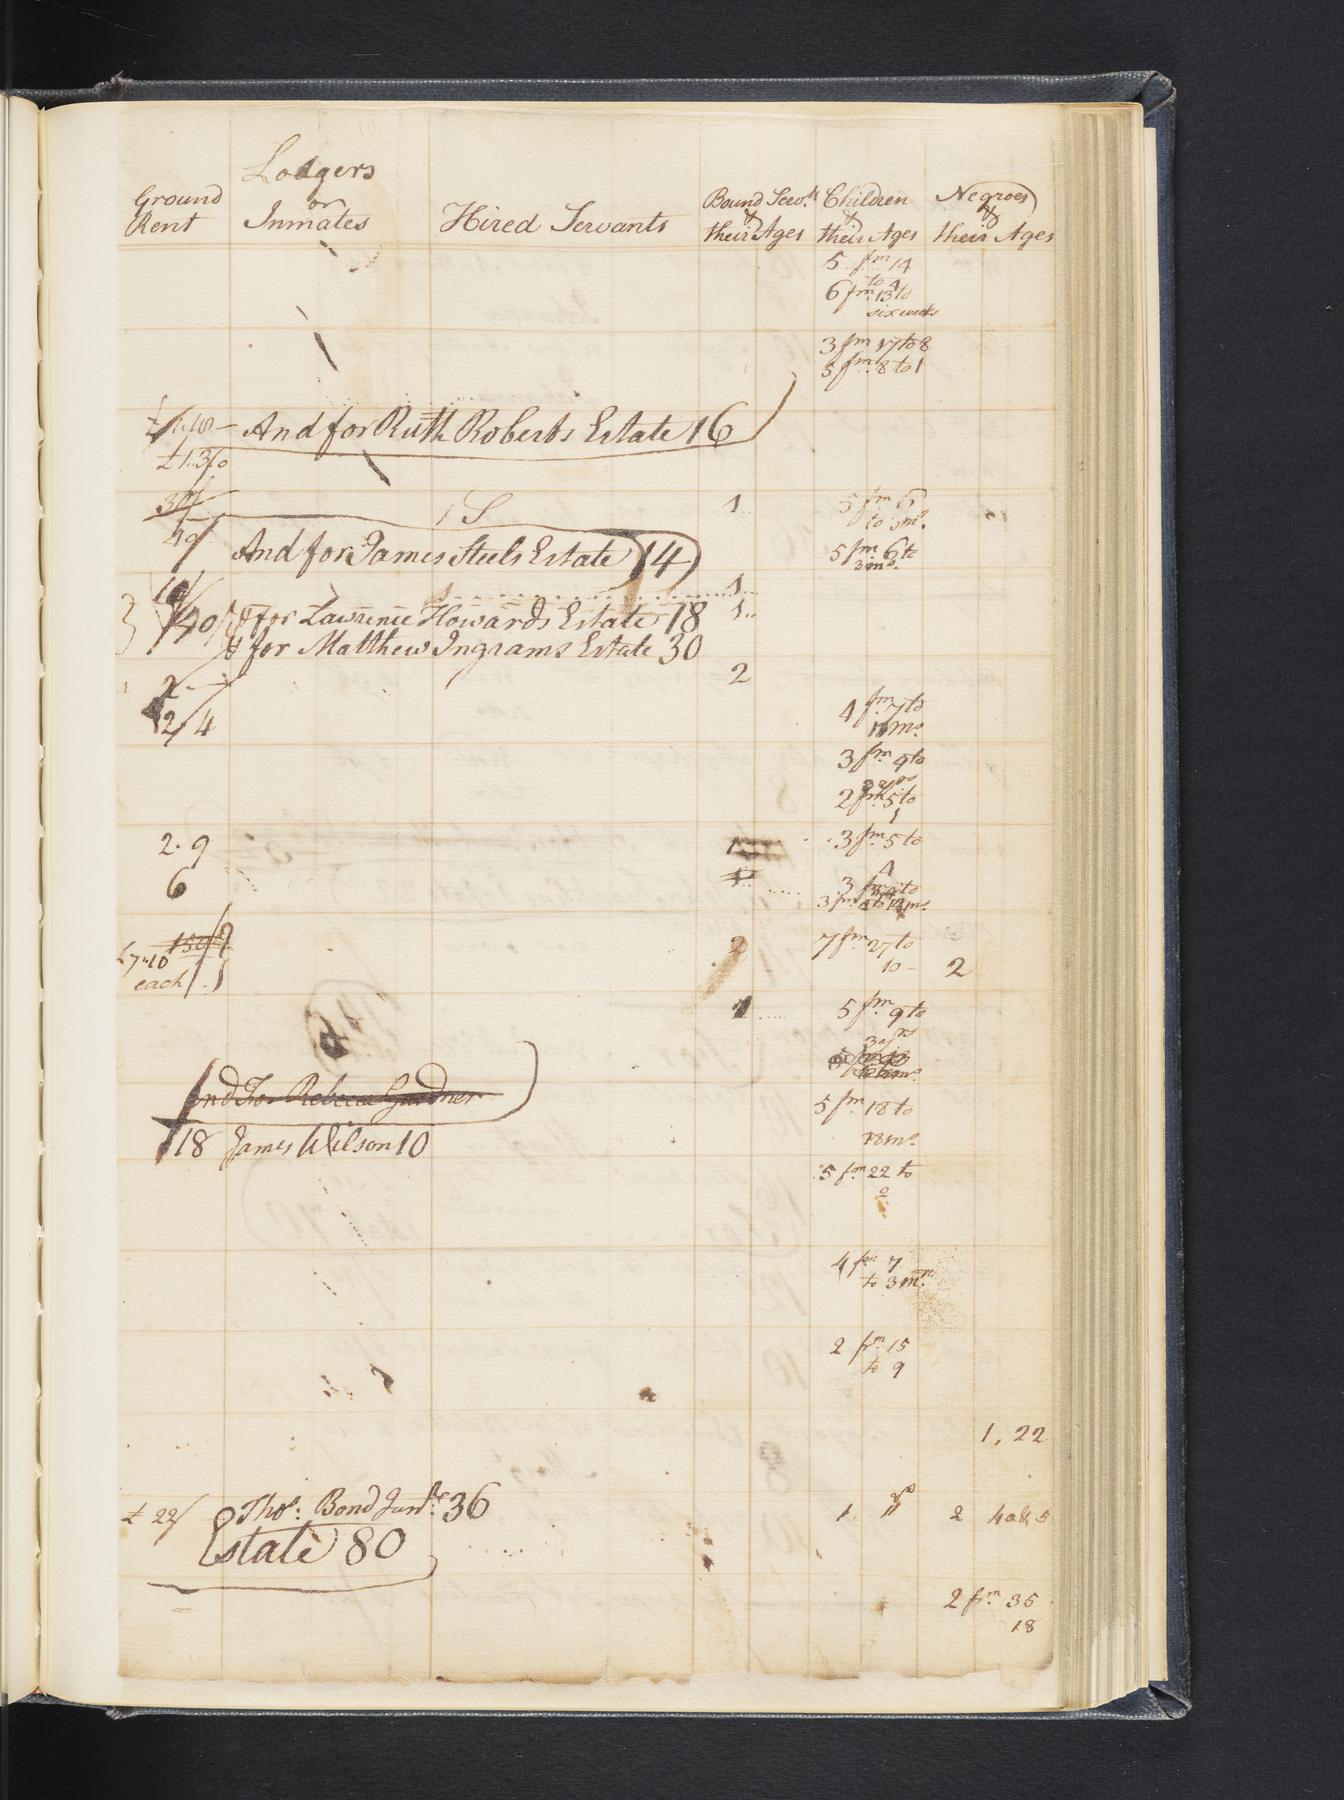 Ground Rent
Lodgers or Inmates
Hired Servants
Bound Servts & their Ages
Children & their Ages
Negroes & their Ages
5 fm 14
to 4
6 fm 13 to
six weeks
3 fm 17 to 8
5 fm 8 to 1
And for Ruth Roberts Estate 16
£1.3/0
1 S
1
5 fm 6
to 3 mo.
40/
And for James Steels Estate 14
5 fm 6 to
3 mo.
1
& for Lawrence Howards Estate 18
1
& for Matthew Ingrams Estate 30
2
2/4
4 fm 7 to
mo.
3 fm 9 to
3 yrs
2 fm 5 to
1
2.9
3 fm 5 to
6
1
3 fm
£7"10
each
2
7 fm 27 to
10
2
1
5 fm 9 to
3 yrs
And For Rebecca Gardner
5 fm 18 to
18 mo.
18 James Wilson 10
5 fm 22 to
2
4 fm 7
to 3 mo.
2 fm 15
to 9
1, 22
£ 22/
Thos: Bond Junr. 36
1
2 4 & 5
Estate 80
2 fm 35
18